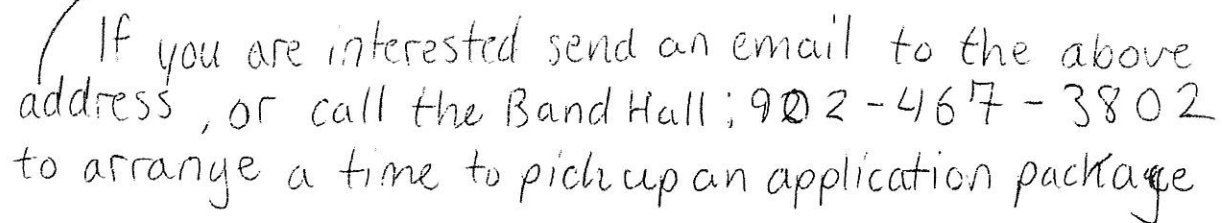 If you are interested send an email to the above
address, or call the Band Hall; 902-467-3802
to arrange a time to pick up an application package